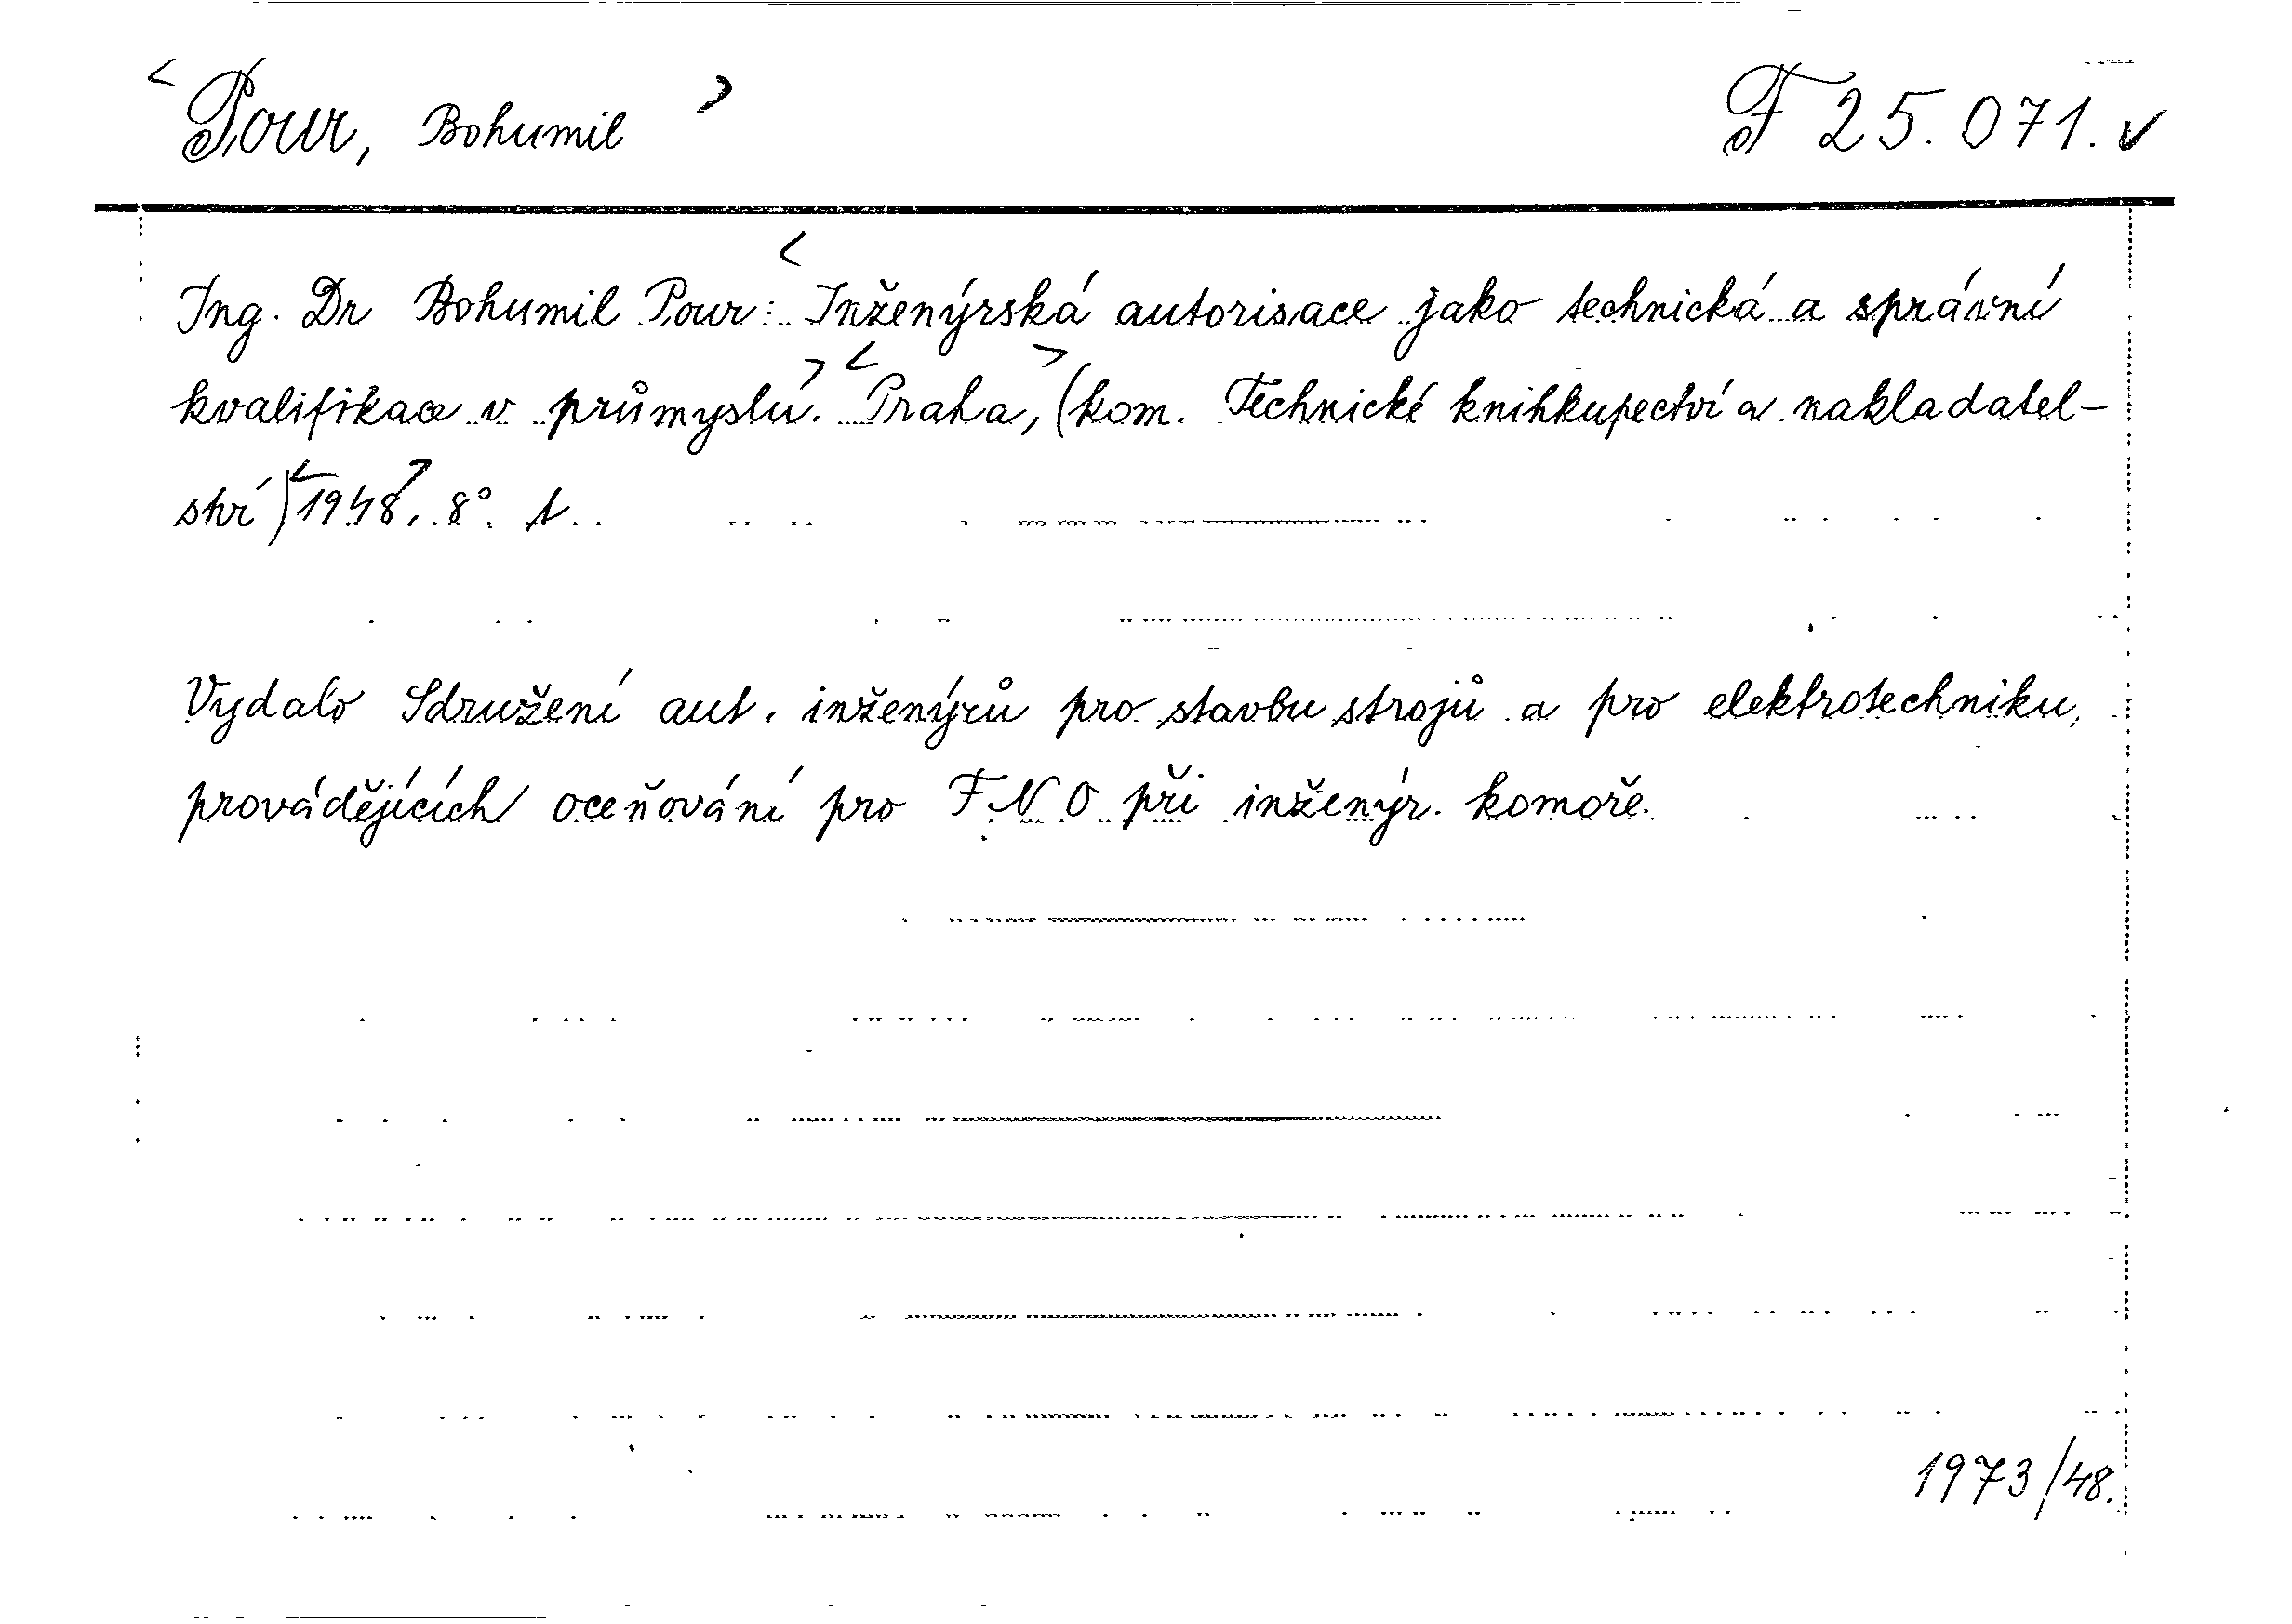 < Pour, Bohumil > F 25.071. ✓
Ing. Dr Bohumil Pour: < Inženýrská autorisace jako technická a správní
kvalifikace v průmyslu. > < Praha, > (kom. Technické knihkupectví a nakladatel-
ství) < 1948. > 8°. s.
Vydalo Sdružení aut. inženýrů pro stavbu strojů a pro elektrotechniku,
provádějících oceňování pro FNO při inženýr. komoře.
1973/48.